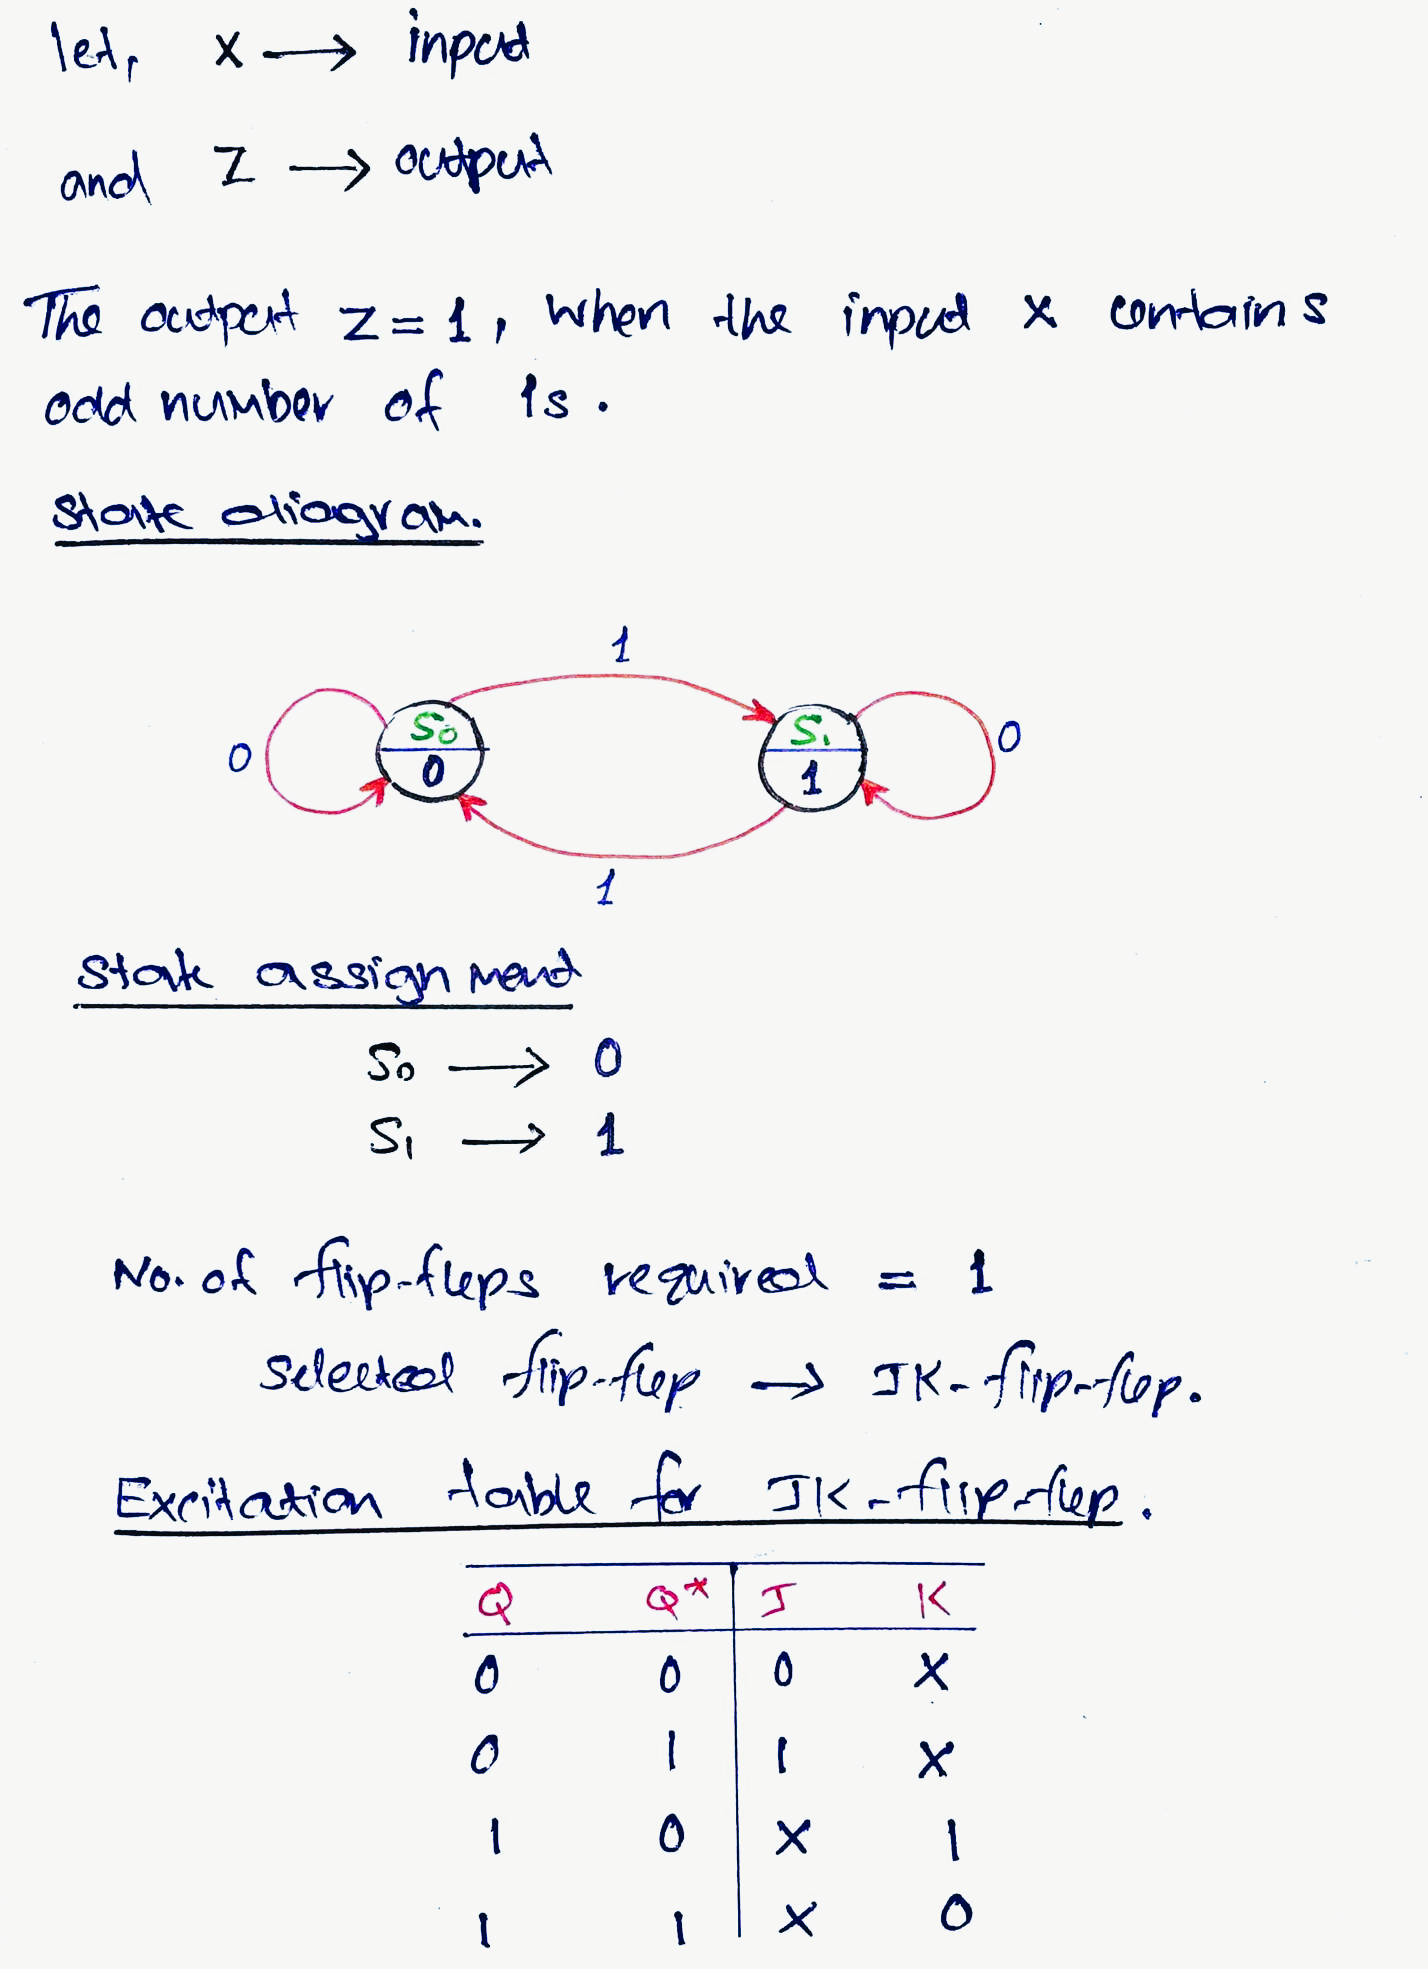 let, X → input
and Z → output
The output Z = 1, when the input X contains
odd number of 1s.
State diagram.
1
S0 S1
0 0
0 1
1
State assignment
S0 → 0
S1 → 1
No. of flip-flops required = 1
Selected flip-flop → JK-flip-flop.
Excitation table for JK-flip-flop.
Q Q* J K
0 0 0 X
0 1 1 X
1 0 X 1
1 1 X 0